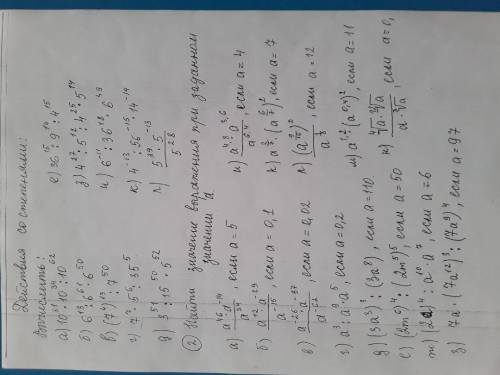 Действия со степенями:
Вычислить:
а) 10²¹·10³⁹:10⁶²
б) 6¹³:6⁶¹·6⁵⁰
в) (7⁴)¹³:7⁵⁰
г) 7⁷·5⁴:35⁵
д) 3⁵¹:15⁵⁰·5⁵²
е) 36¹⁵:9¹⁴:4¹⁵
з) 4²⁷·5¹²:4²⁵:5¹⁴
и) 6⁻¹¹:36¹⁸·6⁴⁹
к) 4⁻¹³:56⁻¹⁵·14⁻¹⁴
л) 5³⁹·5⁻¹³ / 5²⁸
② Найти значение выражения при заданном
значении а
а) a⁴⁶·a⁻¹⁴ / a³⁴, если a=5
б) a⁻¹²·a⁻¹³ / a⁻¹⁵, если a=0,1
в) a⁻²⁶·a⁻³⁷ / a⁻⁶², если a=0,02
г) a³·a⁹:a⁵, если a=0,2
д) (3a³)³:(3a⁸), если a=110
е) (2m⁶)⁴:(2m⁵)⁵, если a=50
ж) (2a)⁴:a¹⁰·a⁷, если a=6
з) 7a·(7a¹²)³:(7a⁹)⁴, если a=97
и) a⁴'⁸·a³'⁶ / a⁶'⁴, если a=4
к) , если a=7
л) , если a=12
м) a¹'²·(a⁰'⁴)², если a=11
н) , если a=0,